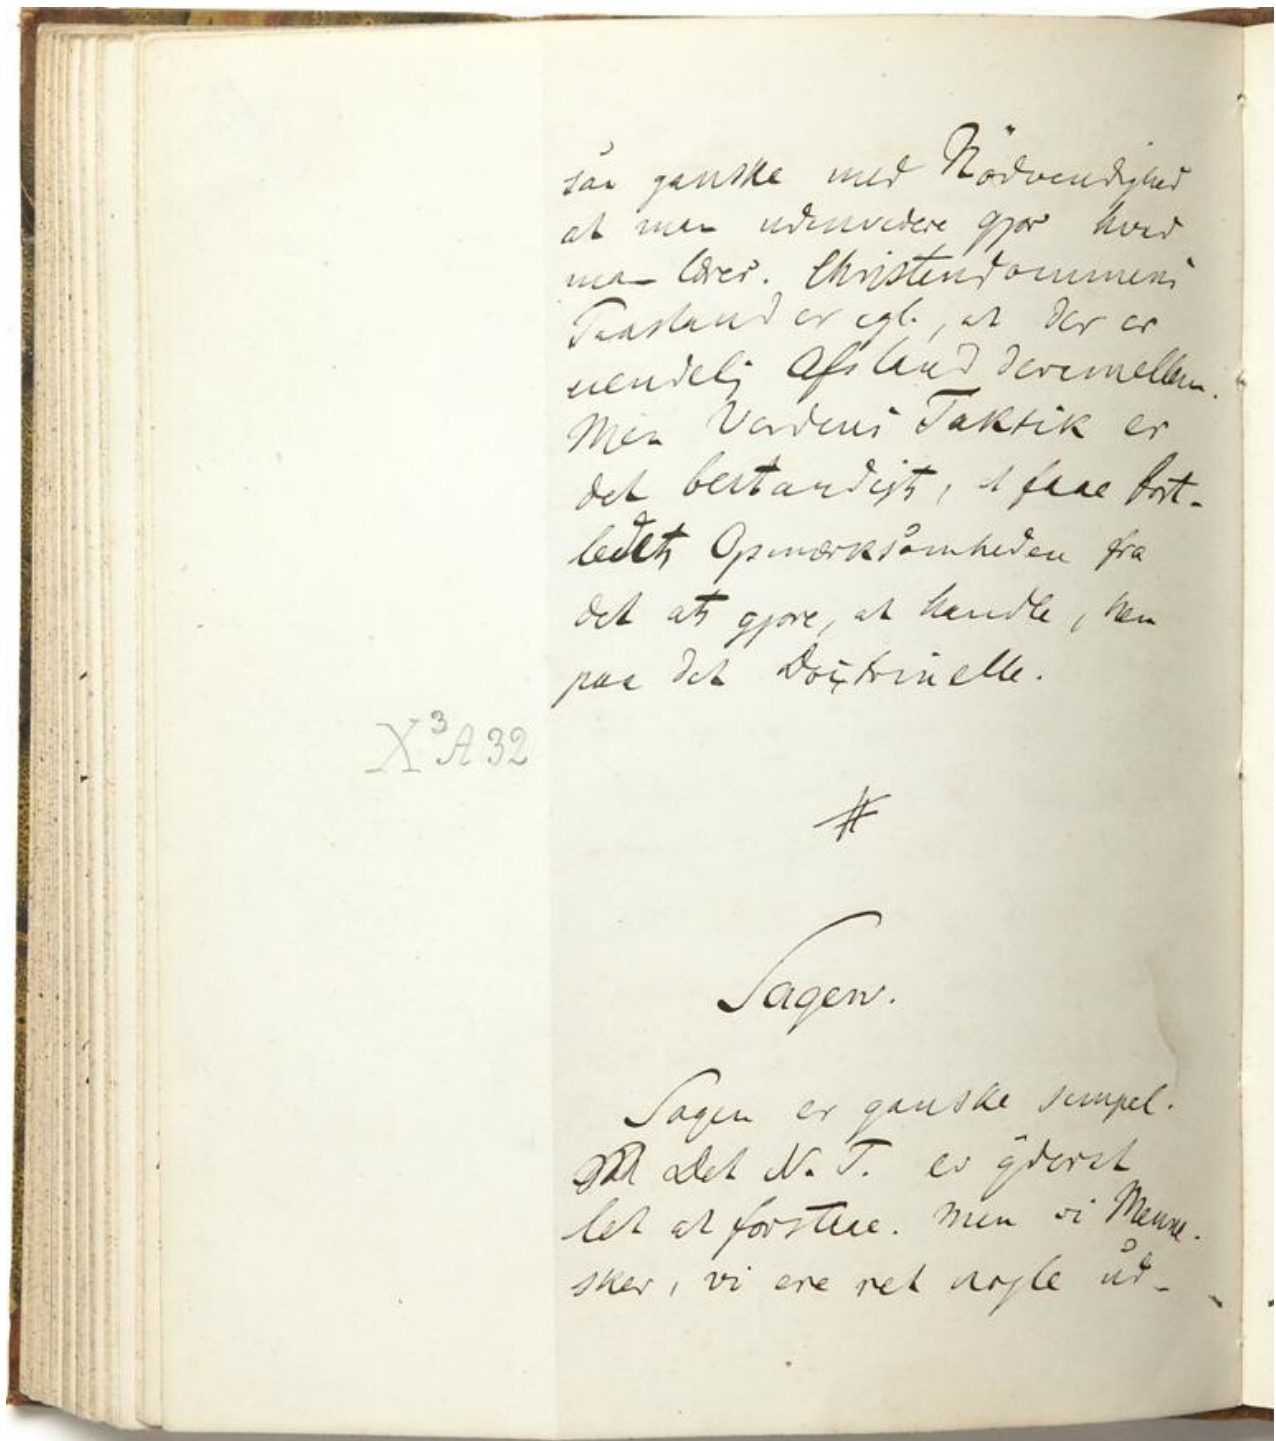 saa ganske med Nödvendighed
at man udenvidere gjør hvad
man lærer. Christendommens
Paastand er egl., at der er
uendelig Afstand derimellem.
Men Verdens Taktik er
det bestandigt, at faae bort-
ledet Opmærksomheden fra
det at gjøre, at handle, hen
paa det Doctrinelle.
X³A 32
#
Sagen.
Sagen er ganske simpel.
Det N. T. er yderst
let at forstaae. Men vi Menne-
sker, vi ere ret nogle ud-